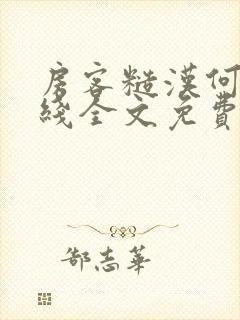 房客糙漢何
綫全文免費
郜志華